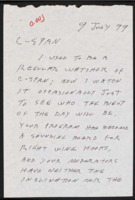 9 JULY 99
C-SPAN
I USED TO BE A
REGULAR WATCHER OF
C-SPAN; NOW I WATCH
IT OCCASIONALLY JUST
TO SEE WHO THE
OF THE DAY WILL BE.
YOUR PROGRAM HAS BECOME
A SOUNDING BOARD FOR
RIGHT WING
AND YOUR MODERATORS
HAVE NEITHER THE
INCLINATION NOR THE